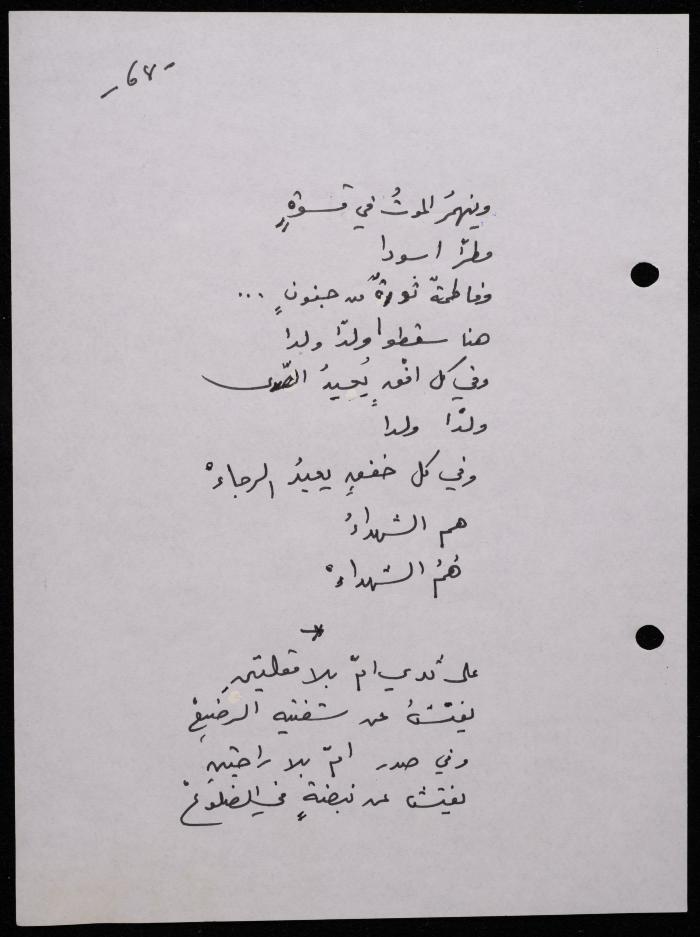 - ٦٨ -
وينهمرُ الموتُ في قسوةٍ
مطرًا اسودا
وفاطمةٌ ثورةٌ من جنونٍ ...
هنا سقطوا ولدًا ولدا
وفي كل افقٍ يُعيدُ الصّدى
ولدًا ولدا
وفي كل خفقٍ يعيدُ الرجاءْ
هم الشهداءُ
هُمُ الشهداءْ
*
على ثدي امّ بلا مقلتينِ
يفتشُ عن شفتيه الرضيعْ
وفي صدر امّ بلا راحتينِ
يفتش عن نبضةٍ في الضلوعْ